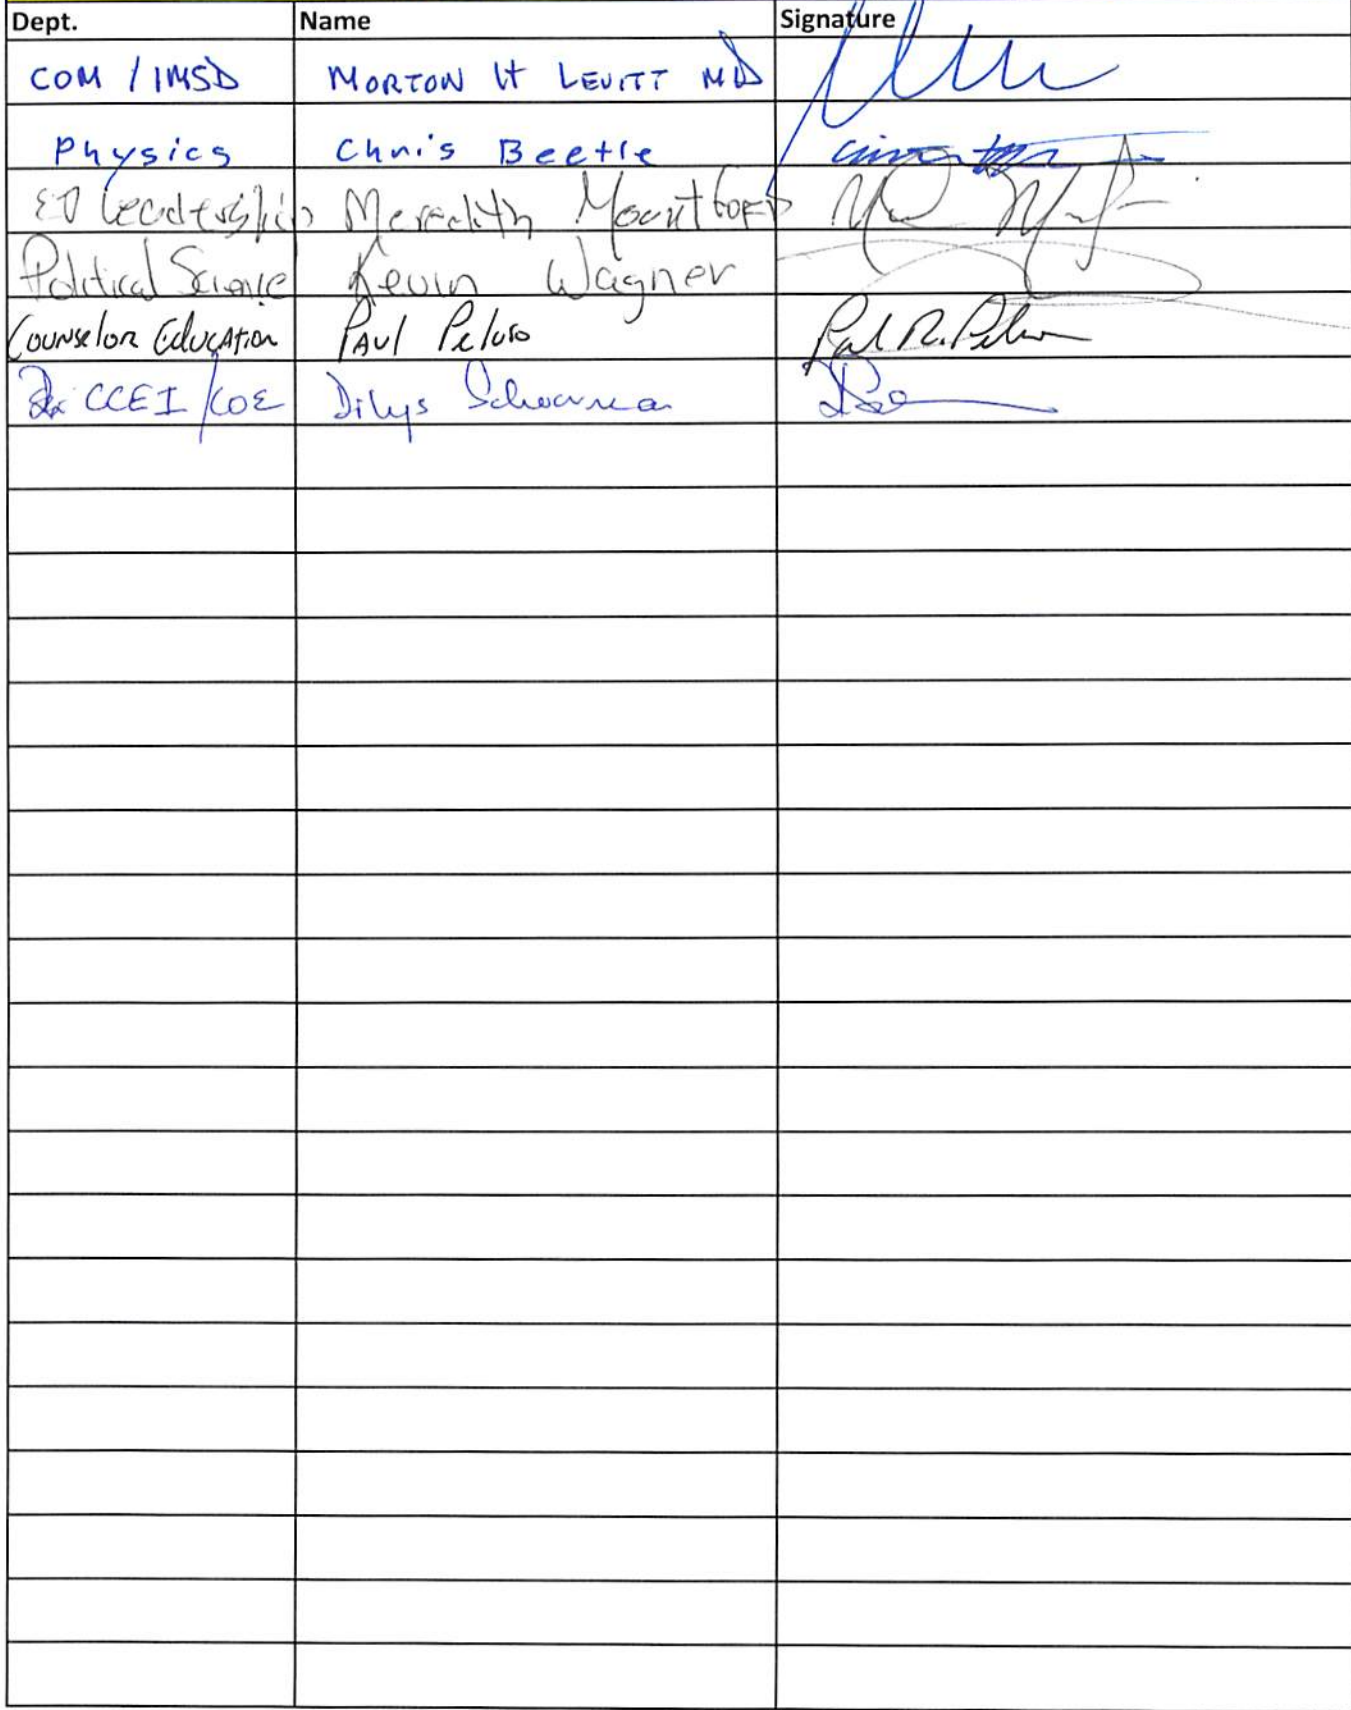 Dept. Name Signature
COM / IMSD MORTON H LEVITT MD
Physics Chris Beetle
ED Leadership Meredith Mountford
Political Science Kevin Wagner
Counselor Education Paul Peluso Paul R. Peluso
CCEI/COE Dilys Schoorman